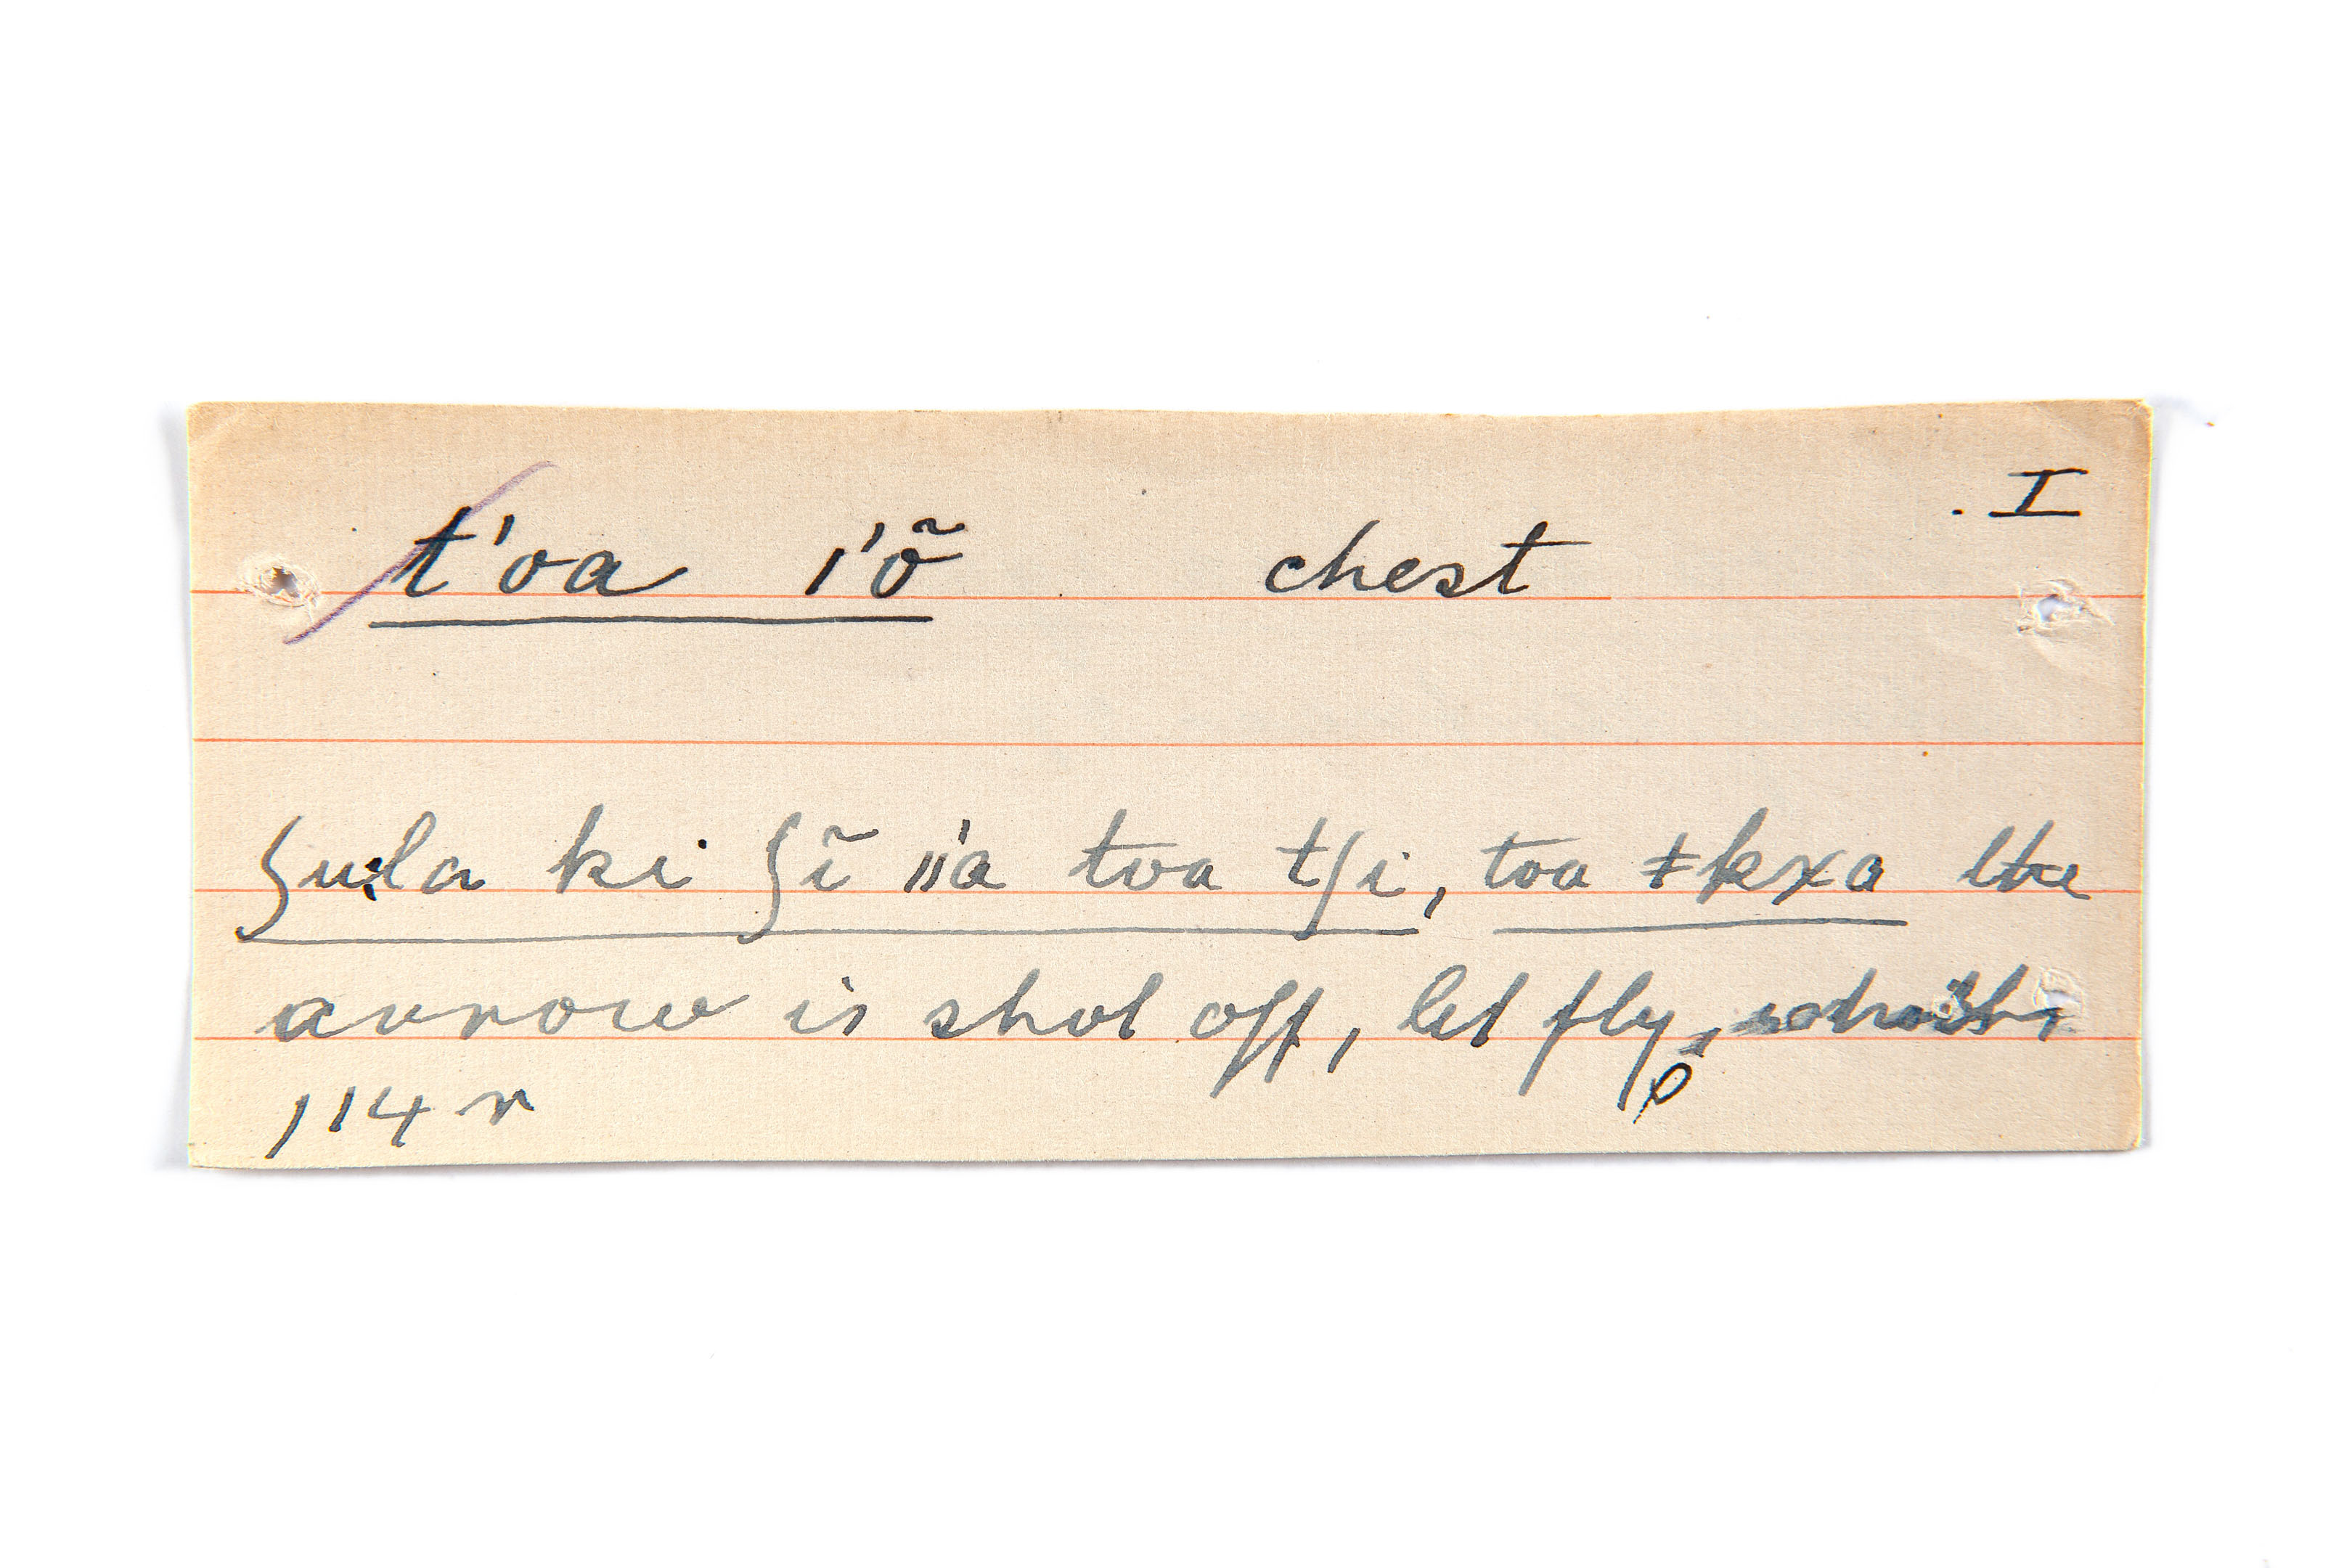 . I
t'oa ı'õ chest
ʃu:la ki ʃĩ ǁ'a toa tʃi, toa ǂkxa the
arrow is shot off, let fly,
114 r